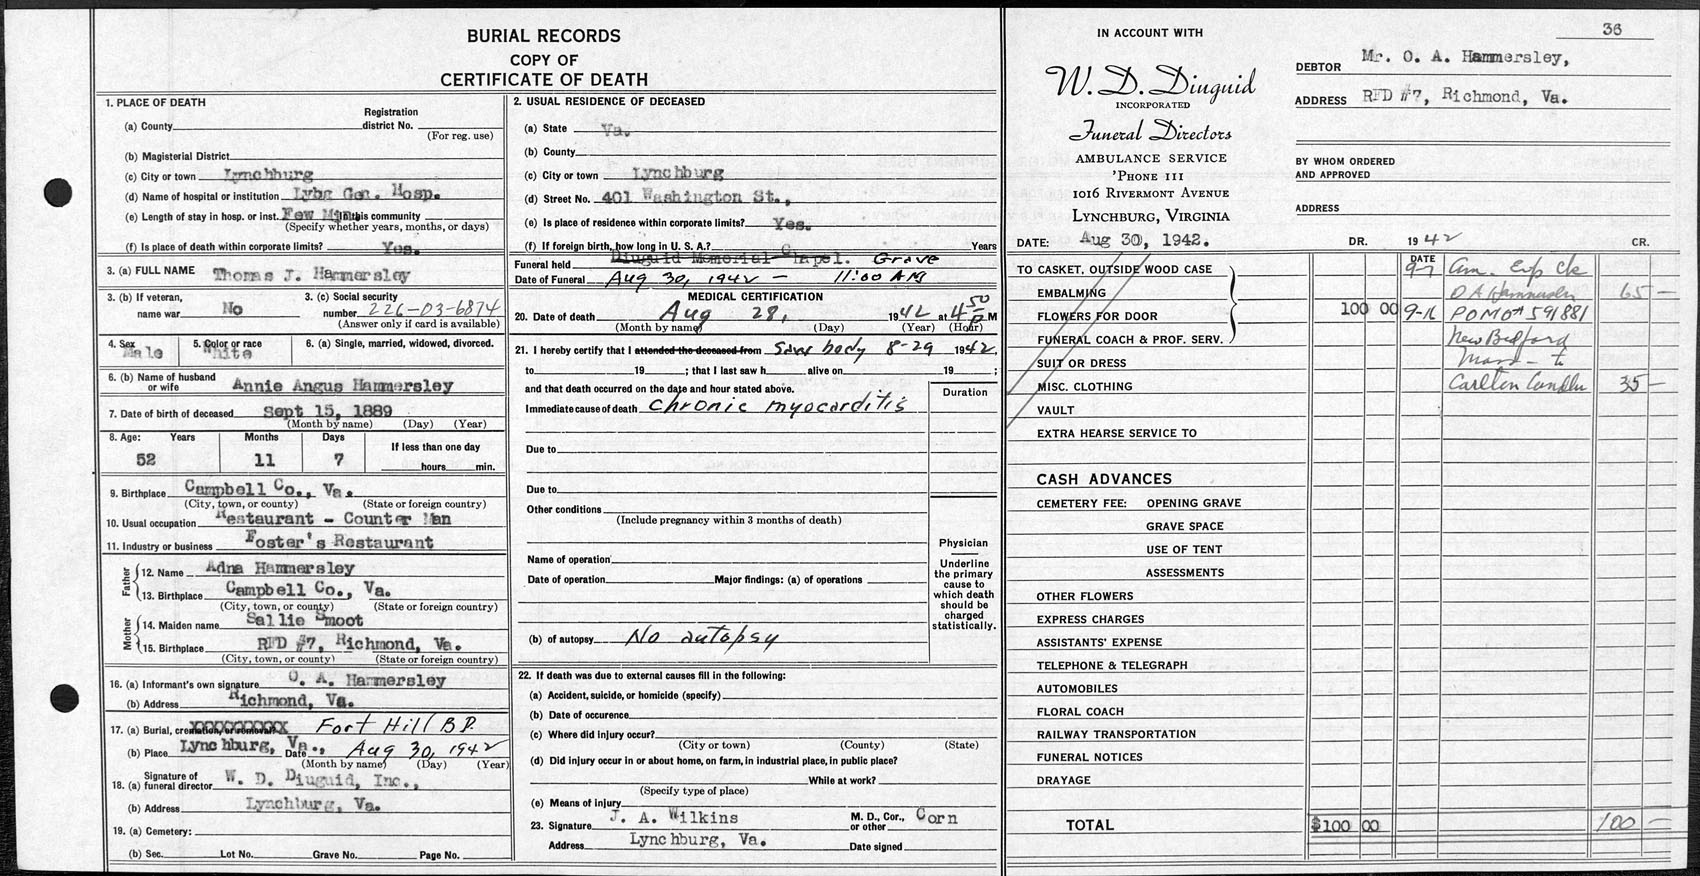 BURIAL RECORDS
COPY OF
CERTIFICATE OF DEATH
1. PLACE OF DEATH
Registration
(a) County district No.
(For reg. use)
(b) Magisterial District
(c) City or town Lynchburg
(d) Name of hospital or institution Lybg Gen. Hosp.
(e) Length of stay in hosp. or inst. Few Min. In this community
(Specify whether years, months, or days)
(f) Is place of death within corporate limits? Yes.
3. (a) FULL NAME Thomas J. Hammersley
3. (b) If veteran, 3. (c) Social security
name war No number 226-03-6874
(Answer only if card is available)
4. Sex 5. Color or race 6. (a) Single, married, widowed, divorced.
Male White
6. (b) Name of husband
or wife Annie Angus Hammersley
7. Date of birth of deceased Sept 15, 1889
(Month by name) (Day) (Year)
8. Age: Years Months Days If less than one day
52 11 7 hours min.
9. Birthplace Campbell Co., Va.
(City, town, or county) (State or foreign country)
10. Usual occupation Restaurant - Counter Man
11. Industry or business Foster's Restaurant
Father
12. Name Adna Hammersley
13. Birthplace Campbell Co., Va.
(City, town, or county) (State or foreign country)
Mother
14. Maiden name Sallie Smoot
15. Birthplace RFD #7, Richmond, Va.
(City, town, or county) (State or foreign country)
16. (a) Informant's own signature O. A. Hammersley
(b) Address Richmond, Va.
17. (a) Burial, cremation, or removal? XXXXXXXXXX Fort Hill B.P.
(b) Place Lynchburg, Va., Date Aug 30, 1942
(Month by name) (Day) (Year)
18. (a) Signature of funeral director W. D. Diuguid, Inc.,
(b) Address Lynchburg, Va.
19. (a) Cemetery:
(b) Sec. Lot No. Grave No. Page No.
2. USUAL RESIDENCE OF DECEASED
(a) State Va.
(b) County
(c) City or town Lynchburg
(d) Street No. 401 Washington St.,
(e) Is place of residence within corporate limits? Yes.
(f) If foreign birth, how long in U. S. A.? Years
Funeral held Diuguid Memorial Chapel. Grave
Date of Funeral Aug 30, 1942 - 11:00 AM
MEDICAL CERTIFICATION
20. Date of death Aug 28, 1942 at 4 50 P M
(Month by name) (Day) (Year) (Hour)
21. I hereby certify that I attended the deceased from Saw body 8-29 1942,
to 19 ; that I last saw h alive on 19 ;
and that death occurred on the date and hour stated above. Duration
Immediate cause of death chronic myocarditis
Due to
Due to
Other conditions
(Include pregnancy within 3 months of death)
Name of operation
Date of operation Major findings: (a) of operations
(b) of autopsy No autopsy
Physician
Underline
the primary
cause to
which death
should be
charged
statistically.
22. If death was due to external causes fill in the following:
(a) Accident, suicide, or homicide (specify)
(b) Date of occurence
(c) Where did injury occur?
(City or town) (County) (State)
(d) Did injury occur in or about home, on farm, in industrial place, in public place?
While at work?
(Specify type of place)
(e) Means of injury
23. Signature J. A. Wilkins M. D., Cor., or other Corn
Address Lynchburg, Va. Date signed
36
IN ACCOUNT WITH
W. D. Diuguid
INCORPORATED
Funeral Directors
AMBULANCE SERVICE
'PHONE 111
1016 RIVERMONT AVENUE
LYNCHBURG, VIRGINIA
DEBTOR Mr. O. A. Hammersley,
ADDRESS RFD #7, Richmond, Va.
BY WHOM ORDERED
AND APPROVED
ADDRESS
DATE: Aug 30, 1942. DR. 1942 CR.
DATE
TO CASKET, OUTSIDE WOOD CASE 9-7 Am. Exp Ck
EMBALMING O A Hammersley 65 -
FLOWERS FOR DOOR 100 00 9-16 POMO# 591881
FUNERAL COACH & PROF. SERV. New Bedford
SUIT OR DRESS Mass -
MISC. CLOTHING Carlton 35 -
VAULT
EXTRA HEARSE SERVICE TO
CASH ADVANCES
CEMETERY FEE: OPENING GRAVE
GRAVE SPACE
USE OF TENT
ASSESSMENTS
OTHER FLOWERS
EXPRESS CHARGES
ASSISTANTS' EXPENSE
TELEPHONE & TELEGRAPH
AUTOMOBILES
FLORAL COACH
RAILWAY TRANSPORTATION
FUNERAL NOTICES
DRAYAGE
TOTAL $100 00 100 -